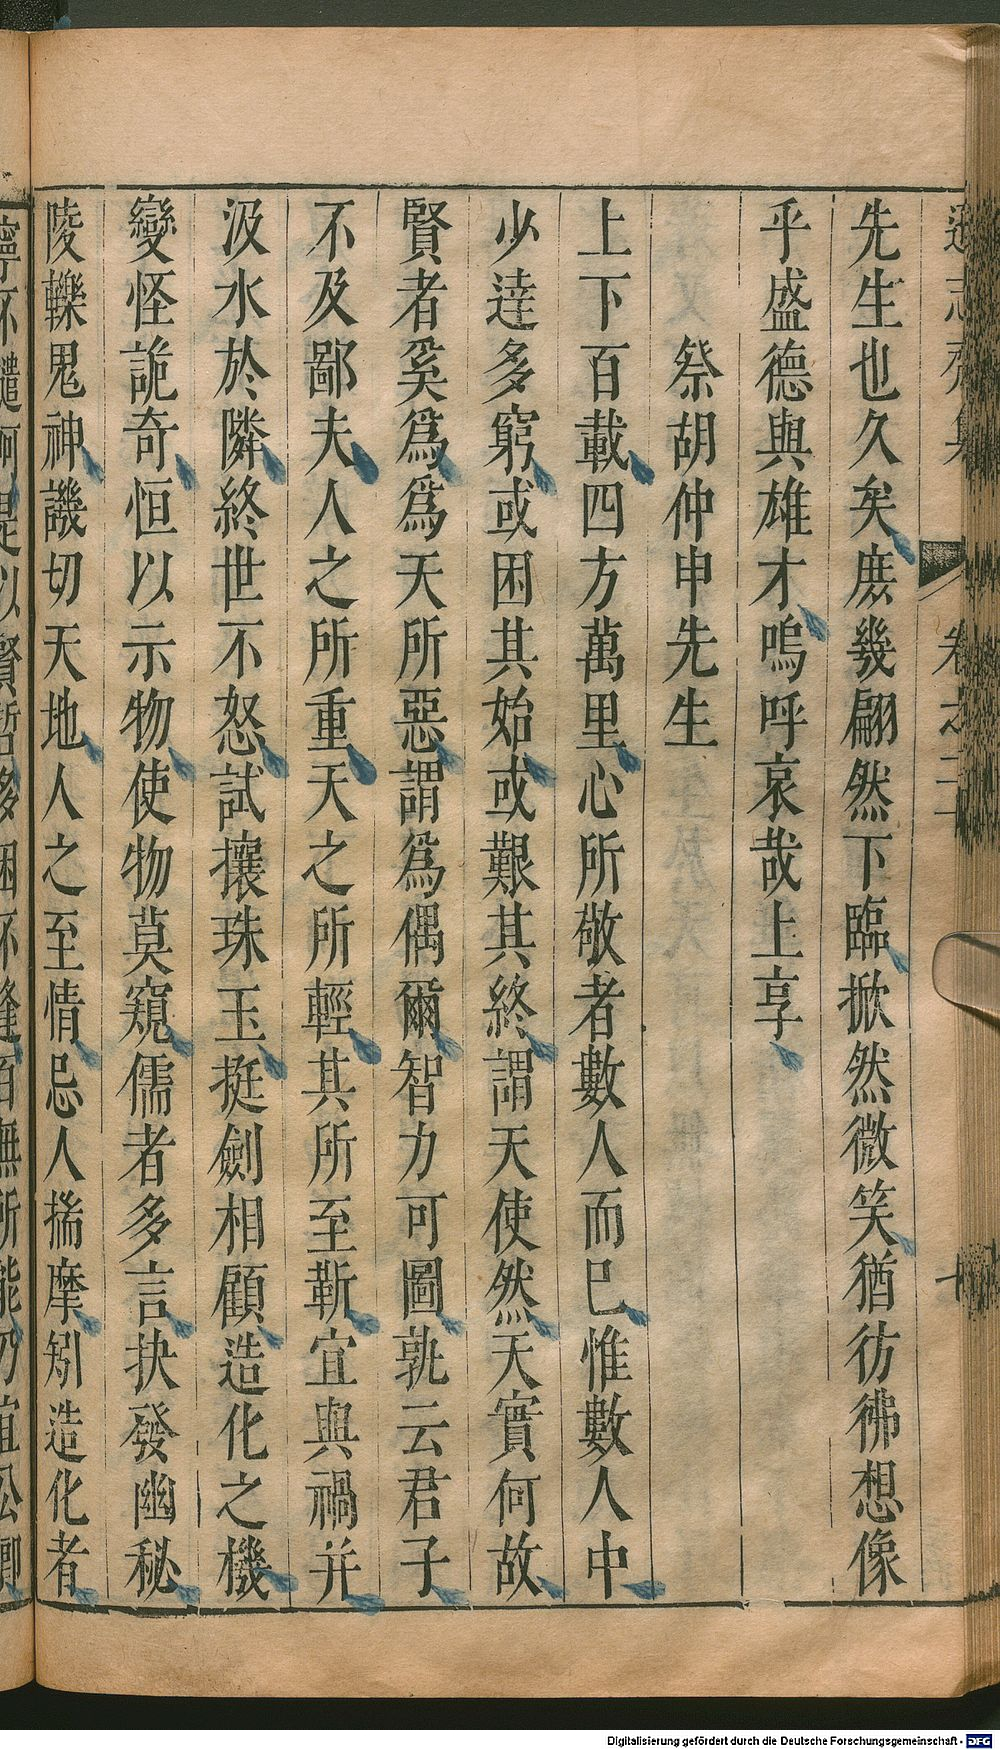 遜志齋集
卷之二十
先生也久矣庶幾翩然下臨掀然微笑猶彷彿想像
乎盛德與雄才嗚呼哀哉上享
祭胡仲申先生
上下百載四方萬里心所敬者數人而巳惟數人中
少達多窮或困其始或艱其終謂天使然天實何故
賢者奚爲爲天所惡謂爲偶爾智力可圖孰云君子
不及鄙夫人之所重天之所輕其所至靳宜與禍并
汲水於隣終世不怒試攘珠玉挺劍相顧造化之機
變怪詭奇恒以示物使物莫窺儒者多言抉發幽秘
陵轢鬼神譏切天地人之至情忌人揣摩矧造化者
Digitalisierung gefördert durch die Deutsche Forschungsgemeinschaft - DFG